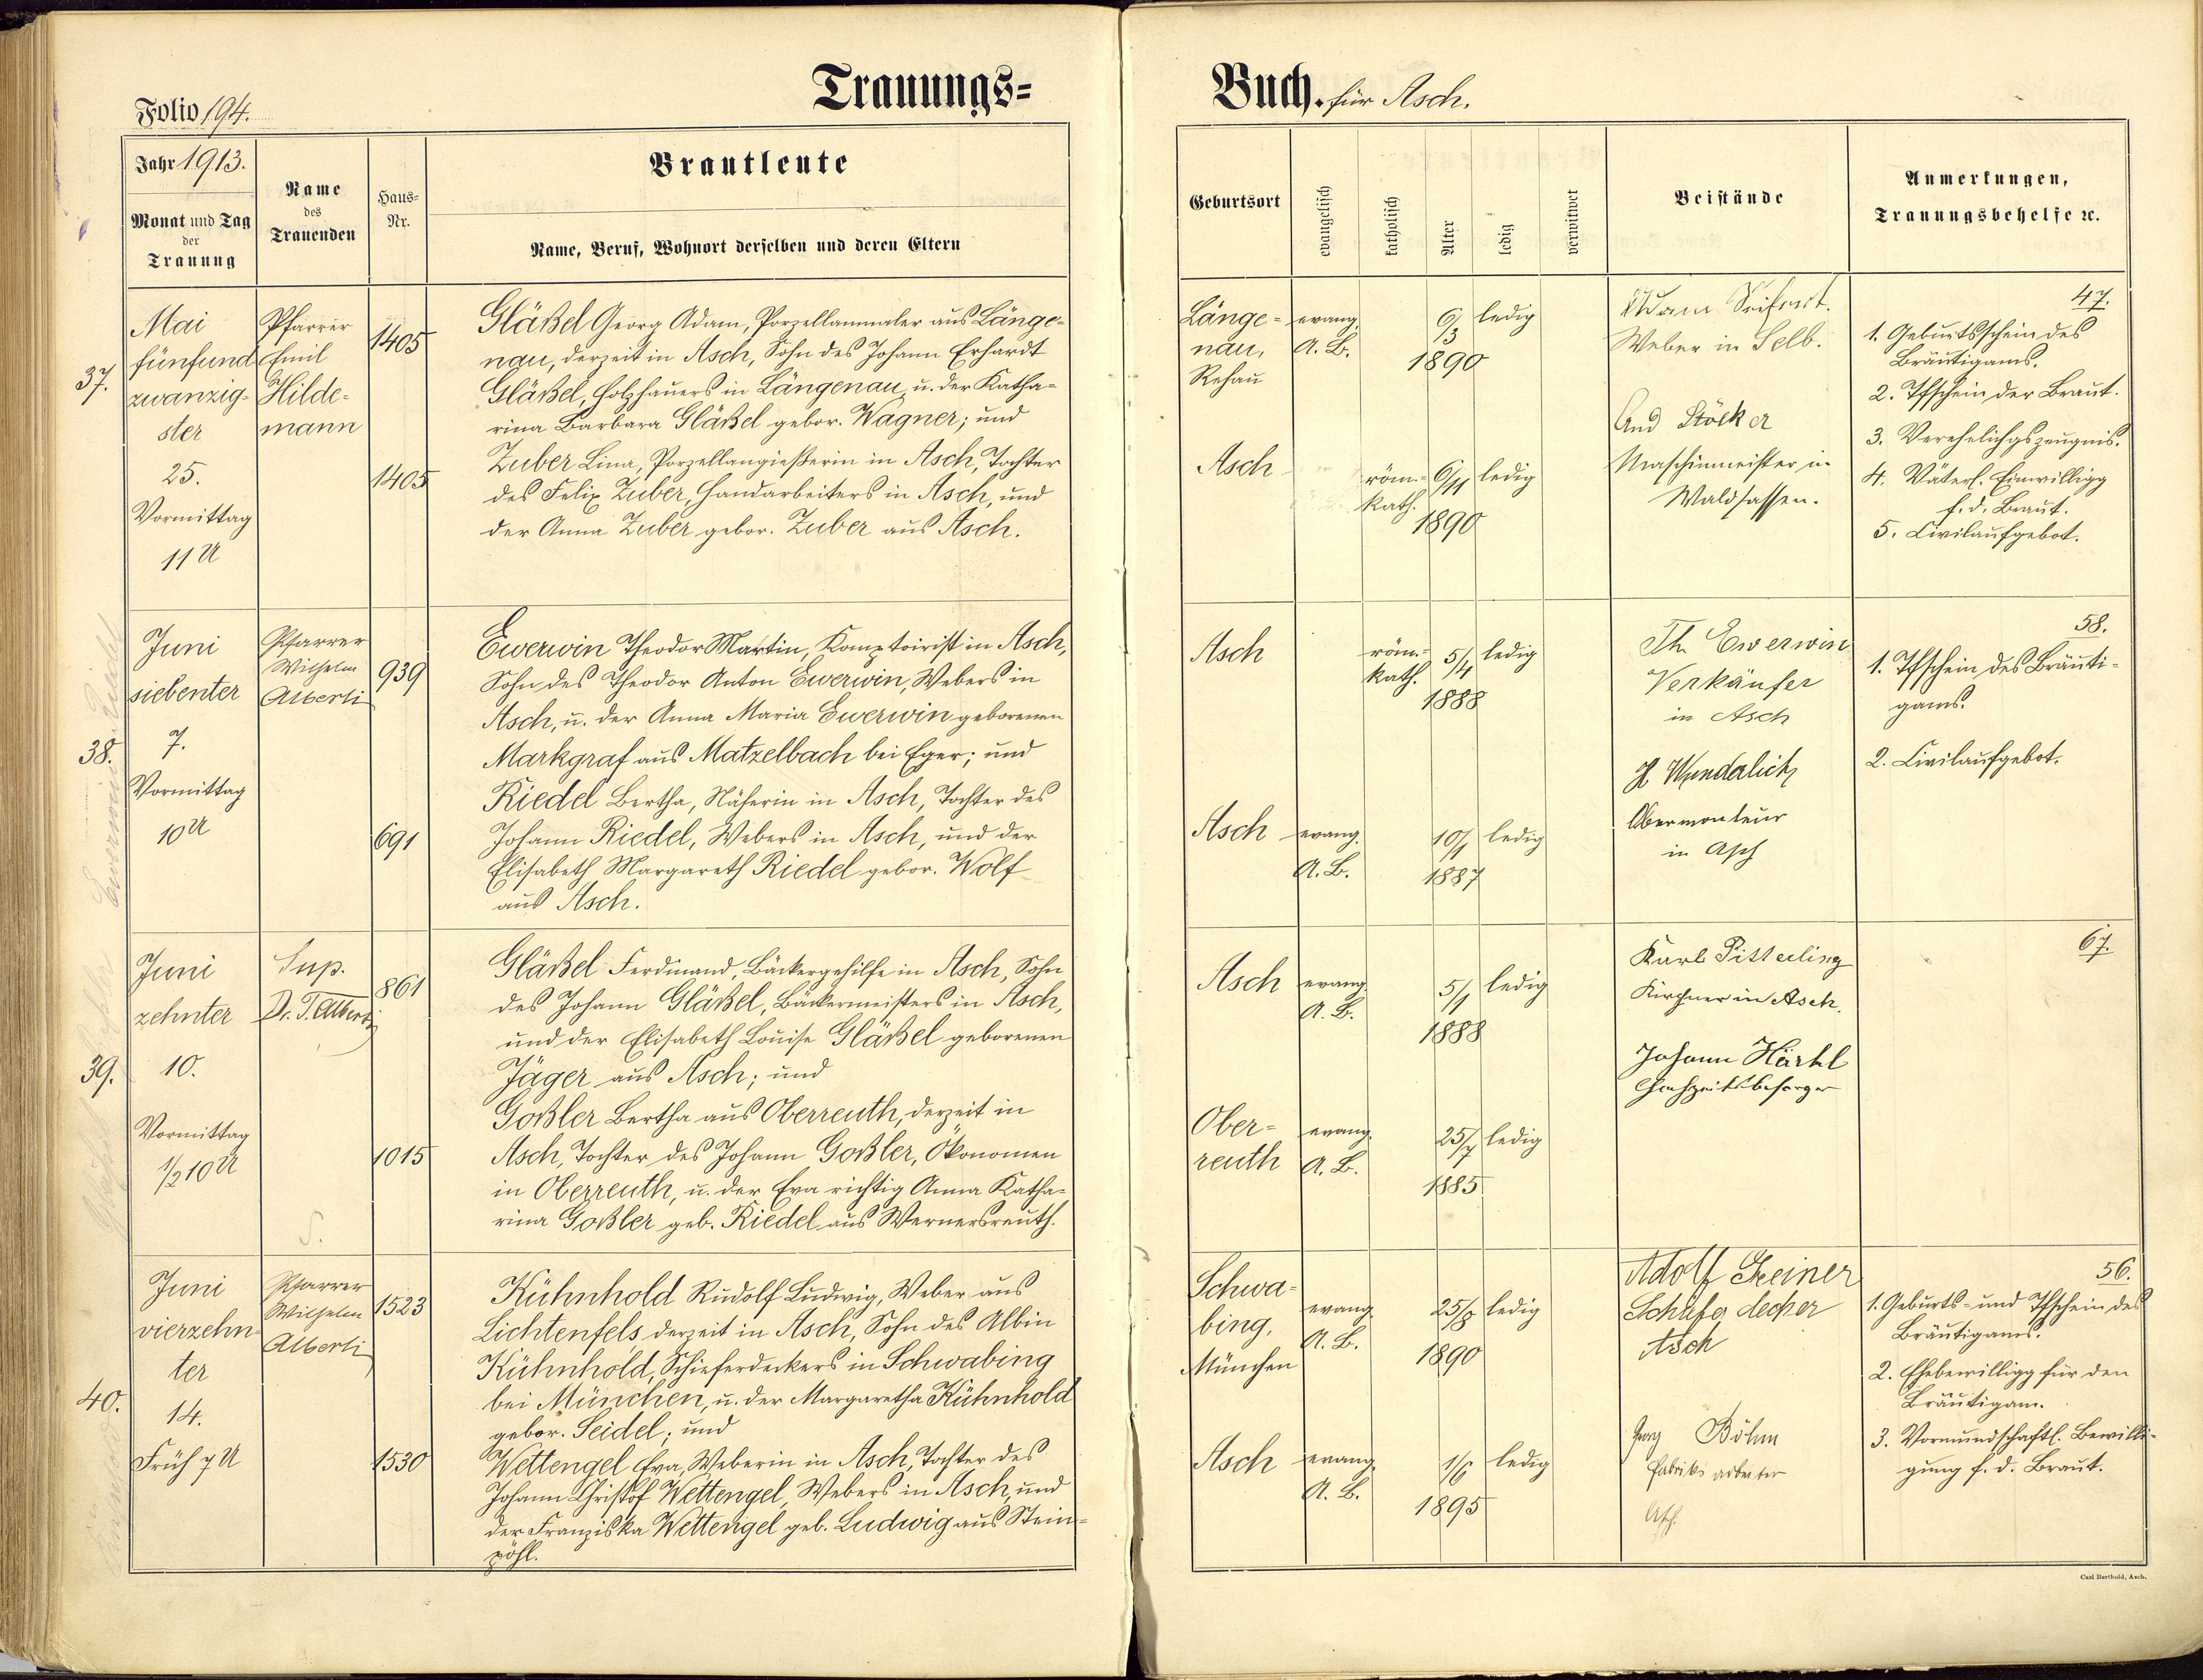 Folio 194.
Trauungs=
Buch. für Asch.
Jahr 1913.
Monat und Tag
der
Trauung
Name
des
Trauenden
Haus=
Nr.
Brautleute
Name, Beruf, Wohnort derselben und deren Eltern
Geburtsort
evangelisch
katholisch
Alter
ledig
verwitwet
Beistände
Anmerkungen,
Trauungsbehelfe ꝛc.
37.
Mai
fünfund
zwanzig-
ster
25.
Vormittag
11 U
Pfarrer
Emil
Hilde-
mann
1405
1405
Gläßel Georg Adam, Porzellanmaler aus Länge-
nau, derzeit in Asch, Sohn des Johann Erhardt
Gläßel, Holzhauers in Längenau, u. der Katha-
rina Barbara Gläßel gebor. Wagner; und
Zuber Lina, Porzellangießerin in Asch, Tochter
des Felix Zuber, Handarbeiters in Asch, und
der Anna Zuber gebor. Zuber aus Asch.
Länge-
nau,
Rehau
evang.
A. B.
6/3
1890
ledig
Asch
röm.-
kath.
6/11
1890
ledig
Adam Seifert.
Weber in Selb.
And Stöcker
Maschinmeister in
Waldsassen.
47.
1. Geburtsschein des
Bräutigams.
2. Tfschein der Braut.
3. Verehelichgszeugnis.
4. Väterl. Einwilligg
f. d. Braut.
5. Civilaufgebot.
38.
Juni
siebenter
7.
Vormittag
10 U
Pfarrer
Wilhelm
Alberti
939
691
Ewerwin Theodor Martin, Komptoirist in Asch,
Sohn des Theodor Anton Ewerwin, Webers in
Asch, u. der Anna Maria Ewerwin geborenen
Markgraf aus Matzelbach bei Eger; und
Riedel Bertha, Näherin in Asch, Tochter des
Johann Riedel, Webers in Asch, und der
Elisabeth Margareth Riedel gebor. Wolf
aus Asch.
Asch
röm.-
kath.
5/4
1888
ledig
Asch
evang.
A. B.
10/1
1887
ledig
Th. Ewerwin
Verkäufer
in Asch
H Wunderlich
Obermonteur
in Asch
58.
1. Tfschein des Bräuti-
gams.
2. Civilaufgebot.
39.
Juni
zehnter
10.
Vormittag
1/2 10 U
Sup.
Dr. T. Alberti
861
1015
Gläßel Ferdinand, Bäckergehilfe in Asch, Sohn
des Johann Gläßel, Bäckermeisters in Asch,
und der Elisabeth Louise Gläßel geborenen
Jäger aus Asch; und
Goßler Bertha aus Oberreuth, derzeit in
Asch, Tochter des Johann Goßler, Ökonomen
in Oberreuth, u. der Eva richtig Anna Katha-
rina Goßler geb. Riedel aus Wernersreuth.
S.
Asch
evang.
A. B.
5/1
1888
ledig
Ober-
reuth
evang.
A. B.
25/7
1885
ledig
Karl Pitterling
Kirchner in Asch.
Johann Härtl
Hochzeitsbesorger
67.
40.
Juni
vierzehn-
ter
14.
Früh 7 U
Pfarrer
Wilhelm
Alberti
1523
1530
Kühnhold Rudolf Ludwig, Weber aus
Lichtenfels derzeit in Asch, Sohn des Albin
Kühnhold, Schieferdeckers in Schwabing
bei München, u. der Margaretha Kühnhold
gebor. Seidel; und
Wettengel Eva, Weberin in Asch, Tochter des
Johann Christof Wettengel, Webers in Asch, und
der Franziska Wettengel geb. Ludwig aus Stein-
pöhl.
Schwa-
bing,
München
evang.
A. B.
25/8
1890
ledig
Asch
evang.
A. B.
1/6
1895
ledig
Adolf
Asch
Georg Böhm
Fabriksarbeiter
Asch.
56.
1. Geburts- und Tfschein des
Bräutigams.
2. Ehebewilligg für den
Bräutigam.
3. Vormundschaftl. Bewilli-
gung f. d. Braut.
Carl Berthold, Asch.